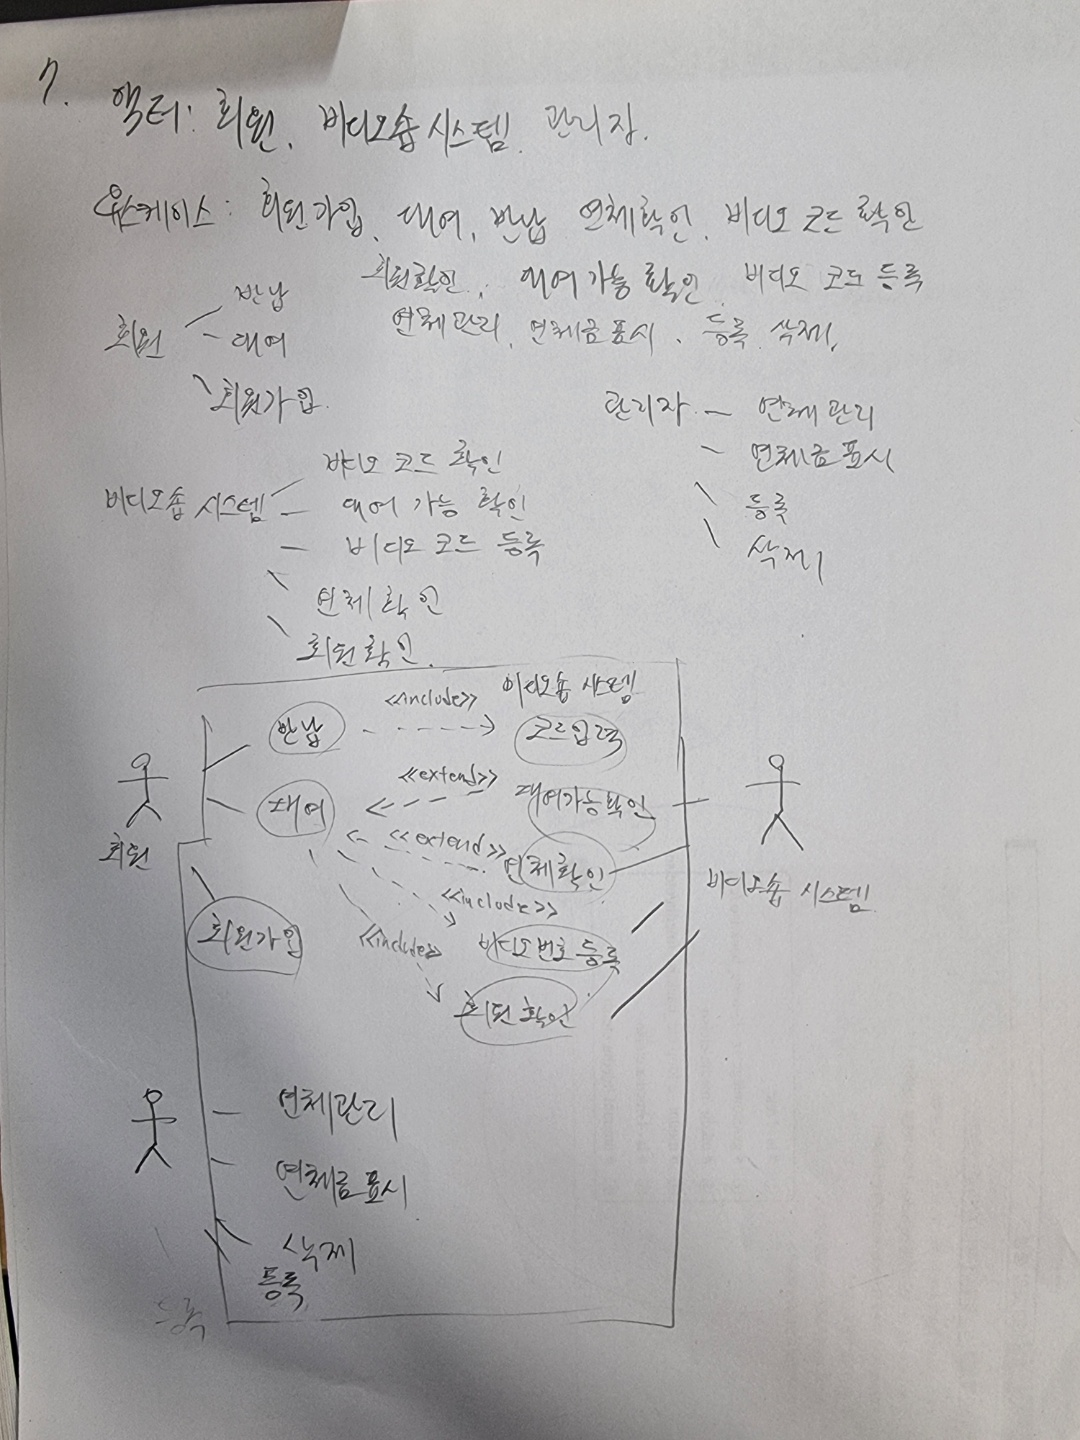 7.
액터: 회원, 비디오숍 시스템, 관리장.
유스케이스: 회원가입, 대여, 반납 연체확인, 비디오 코드 확인
회원확인, 대여가능 확인, 비디오 코드 등록
연체관리, 연체금 표시, 등록, 삭제,
회원
반납
대여
회원가입
관리자
연체관리
연체금 표시
등록
삭제
비디오숍 시스템
비디오 코드 확인
대여 가능 확인
비디오 코드 등록
연체 확인
회원확인
비디오숍 시스템
반납
<<include>>
코드입력
대여
<<extend>>
대여가능확인
<<extend>>
연체확인
<<include>>
비디오번호 등록
<<include>>
회원 확인
회원
회원가입
비디오숍 시스템
연체관리
연체금 표시
삭제
등록
등록